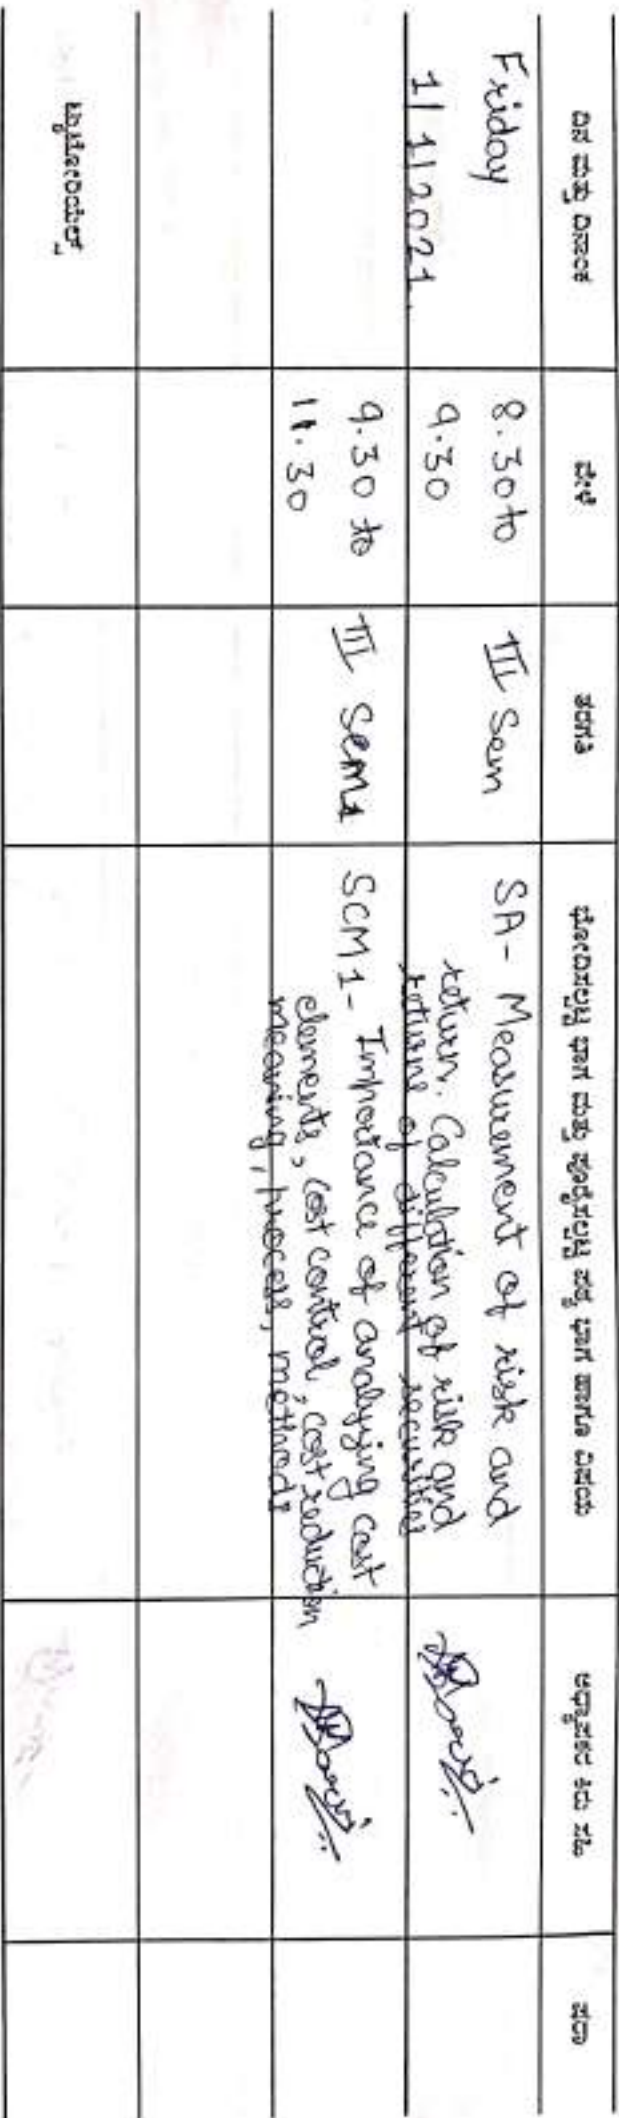 ದಿನ ಮತ್ತು ದಿನಾಂಕ
ವೇಳೆ
ತರಗತಿ
ಭೋದಿಸಲ್ಪಟ್ಟ ಭಾಗ ಮತ್ತು ಪೂರೈಸಲ್ಪಟ್ಟ ಪಠ್ಯ ಭಾಗ ಹಾಗೂ ವಿಷಯ
ಅಧ್ಯಾಪಕರ ಕಿರು ಸಹಿ
ಷರಾ
Friday
1/1/2021.
8.30 to
9.30
III Sem
SA- Measurement of risk and
return. Calculation of risk and
returns of different securities
9.30 to
11.30
III Sem
SCM1- Importance of analysing cost
elements, cost control, cost reduction
meaning, process, methods
ಟ್ಯುಟೋರಿಯಲ್ಸ್